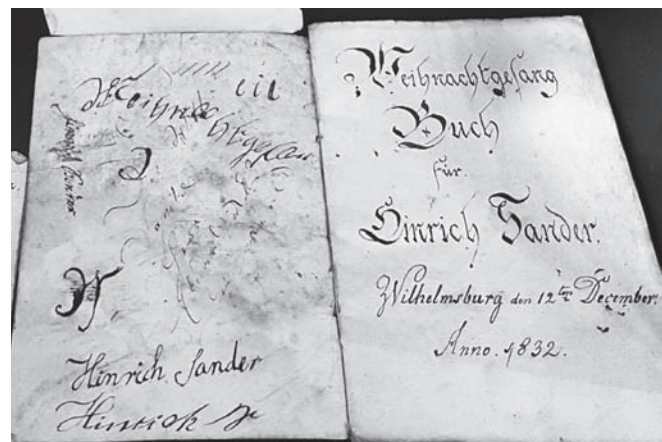 Weihnachtgesan
Hinrich Sander
W
Hinrich Sander
Hinrich
Weihnachtgesang
Buch
für
Hinrich Sander.
Wilhelmsburg den 12ten December.
Anno. 1832.